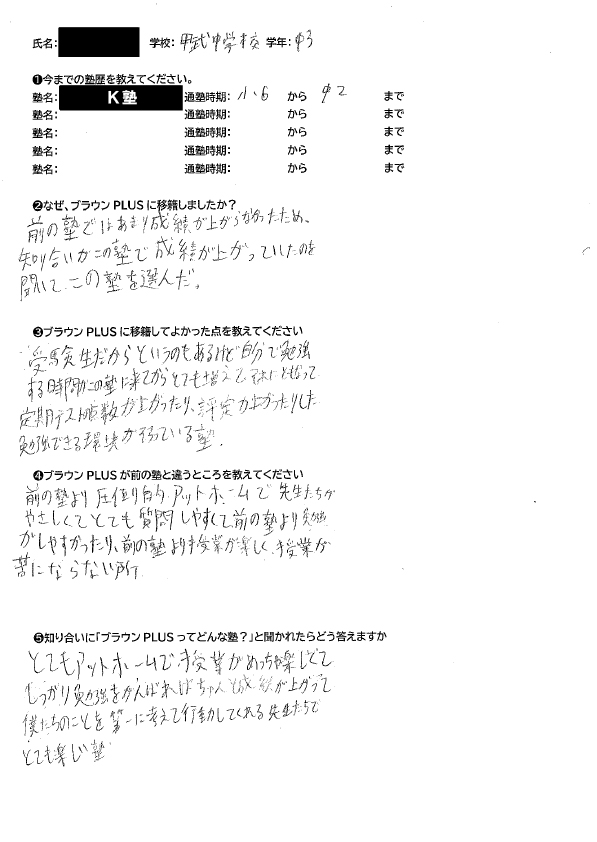 氏名: 学校: 甲武中学校 学年: 中3
❶今までの塾歴を教えてください。
塾名: K塾 通塾時期: 小6 から 中2 まで
塾名: 通塾時期: から まで
塾名: 通塾時期: から まで
塾名: 通塾時期: から まで
塾名: 通塾時期: から まで
❷なぜ、ブラウンPLUSに移籍しましたか?
前の塾ではあまり成績が上がらなかったため、
知り合いがこの塾で成績が上がっていたのを
聞いて、この塾を選んだ。
❸ブラウンPLUSに移籍してよかった点を教えてください
受験生だからというのもあるけど自分で勉強
する時間がこの塾に来てからとても増えて、それにともなって
定期テストの点数が上がったり、評定が上がったりした
勉強できる環境が整っている塾。
❹ブラウンPLUSが前の塾と違うところを教えてください
前の塾より圧倒的アットホームで先生たちが
やさしくてとても質問しやすくて前の塾より勉強
がしやすかったり、前の塾より授業が楽しく、授業が
苦にならない所
❺知り合いに「ブラウンPLUSってどんな塾?」と聞かれたらどう答えますか
とてもアットホームで授業がめっちゃ楽しくて
しっかり勉強をがんばればちゃんと成績が上がって
僕たちのことを第一に考えて行動してくれる先生たちで
とても楽しい塾